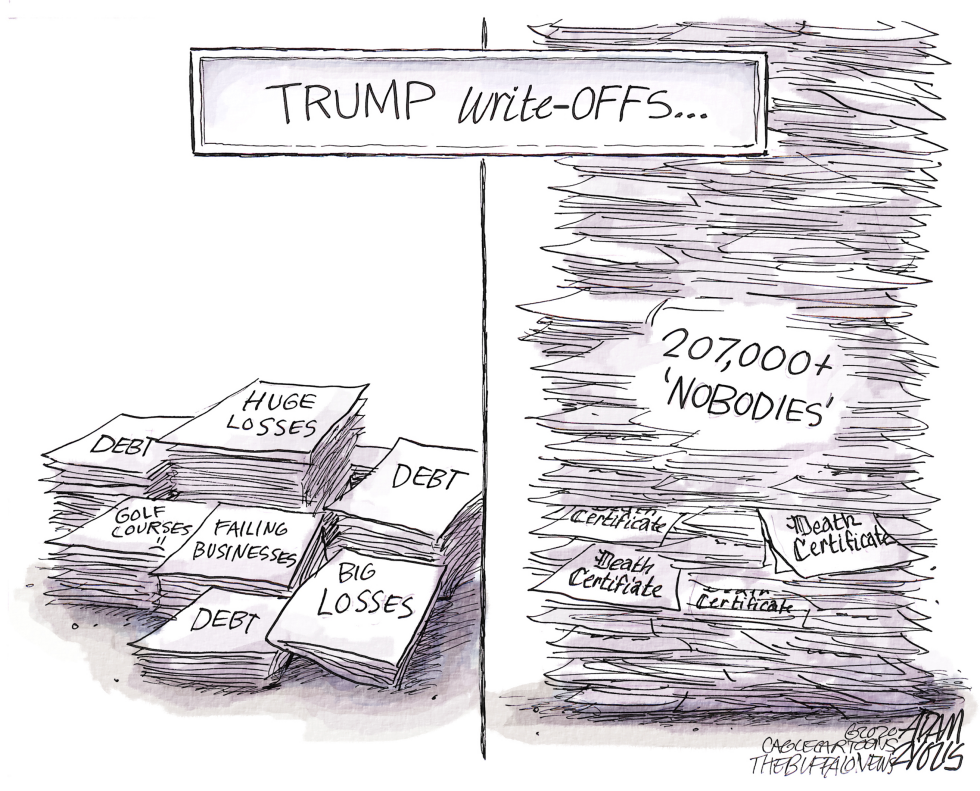 TRUMP write-OFFS...
DEBT
HUGE
LOSSES
DEBT
GOLF
COURSES!!
FAILING
BUSINESSES
BIG
LOSSES
DEBT
207,000+
'NOBODIES'
Death
Certificate
Death
Certificate
Death
Certifiate
Death
Certificate
©2020
CAGLECARTOONS
THEBUFFALONEWS
ADAM
ZYGLIS